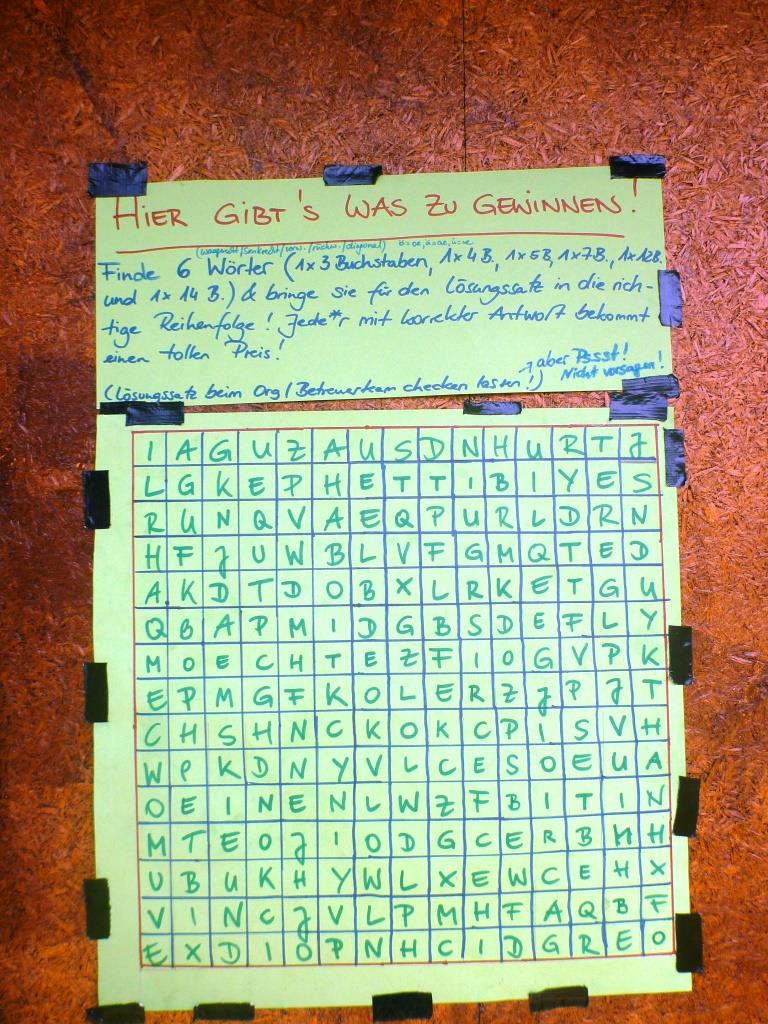 HIER GIBT'S WAS ZU GEWINNEN!
(waagrecht/senkrecht/vorw./rückw./diagonal) ö=oe, ä=ae, ü=ue
Finde 6 Wörter (1x3 Buchstaben, 1x4 B., 1x5B, 1x7B., 1x12B.
und 1x14 B.) & bringe sie für den Lösungssatz in die rich-
tige Reihenfolge! Jede*r mit korrekter Antwort bekommt
einen tollen Preis!
→ aber Pssst!
Nicht vorsagen!
(Lösungssatz beim Org/Betreuerteam checken lassen!)
I A G U Z A U S D N H U R T J
L G K E P H E T T I B I Y E S
R U N Q V A E Q P U R L D R N
H F J U W B L V F G M Q T E D
A K D T D O B X L R K E T G U
Q B A P M I D G B S D E F L Y
M O E C H T E Z F I O G V P K
E P M G F K O L E R Z J P J T
C H S H N C K O K C P I S V H
W P K D N Y V L C E S O E U A
O E I N E N L W Z F B I T I N
M T E O J I O D G C E R B H H
U B U K H Y W L X E W C E H X
V I N C J V L P M H F A Q B F
E X D I O P N H C I D G R E O